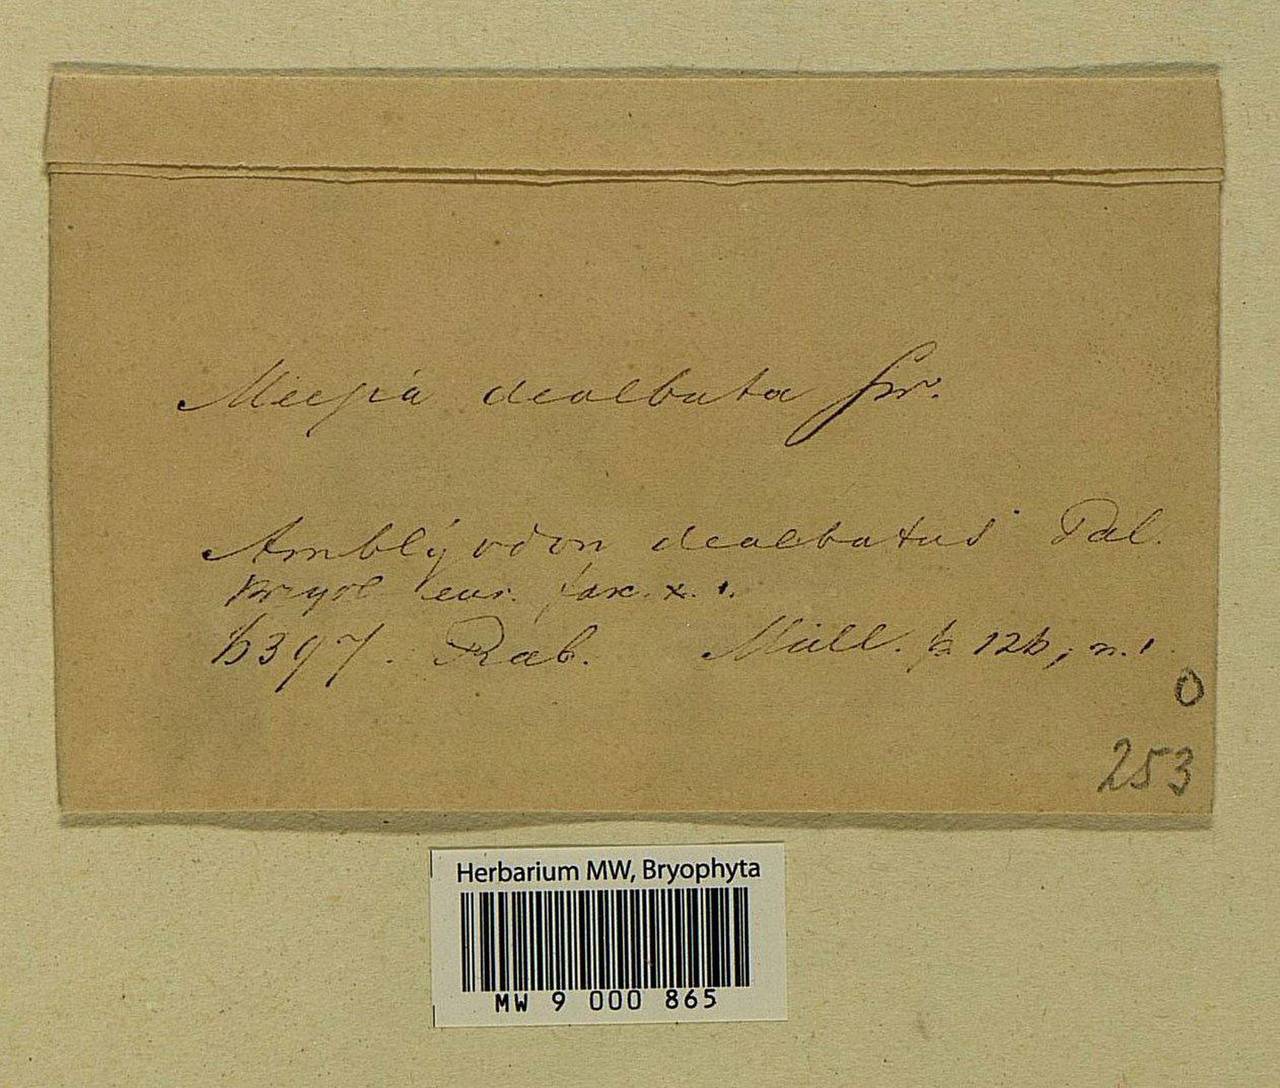 Meesia dealbata Sw.
Amblyodon dealbatus Pal.
Bryol eur. fasc. x. 1.
b397. Rab. Müll. p. 126, n. 1.
0
253
Herbarium MW, Bryophyta
MW 9 000 865